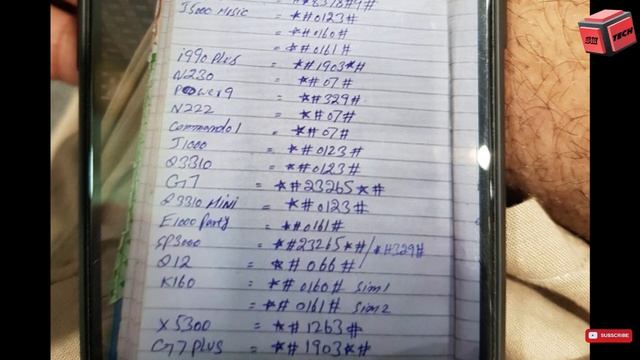 J5000 Music = *#8378#9#
= *#0123#
= *#0160#
= *#0161#
i990 Plus = *#1903*#
N230 = *#07#
Power9 = *#329#
N222 = *#07#
Commando1 = *#07#
J1000 = *#0123#
Q3310 = *#0123#
G7 = *#23265*#
Q3310 Mini = *#0123#
E1000 Party = *#0161#
SP3000 = *#23265*#/*#329#
Q12 = *#066#
K160 = *#0160# Sim1
= *#0161# Sim2
X5300 = *#1263#
G7 Plus = *#1903*#
SM
TECH
SUBSCRIBE